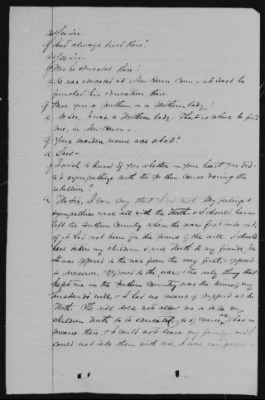 a Yes Sir.
q Had always lived there?
a Yes Sir.
q Was he educated there?
a He was educated at New Haven Conn - at least he
finished his education there
q Were you a northern or a Southern lady?
a No Sir, I was a Northern lady. That is where he found
me, in New Haven.
q Your maiden name was what?
a
q I wish to know if you whether in your heart you did
sympathize with the Southern Cause during the
rebellion?
a No Sir, I can say that I did not. My feelings &
sympathies were all with the North & I should have
left the Southern Country when the war first broke out,
if it had not been for the terms of the will. I should
have taken my children & gone North to my friends, for
I was opposed to the war from the very first; opposed
to secession, opposed to the war; the only thing that
kept me in the Southern Country was the terms of my
husband's will, & I had no means of support at the
North. The will did not allow me to take my
children North to be educated, & of course I had no
means there, & I could not leave my family and I
could not take them with me, I was compelled to